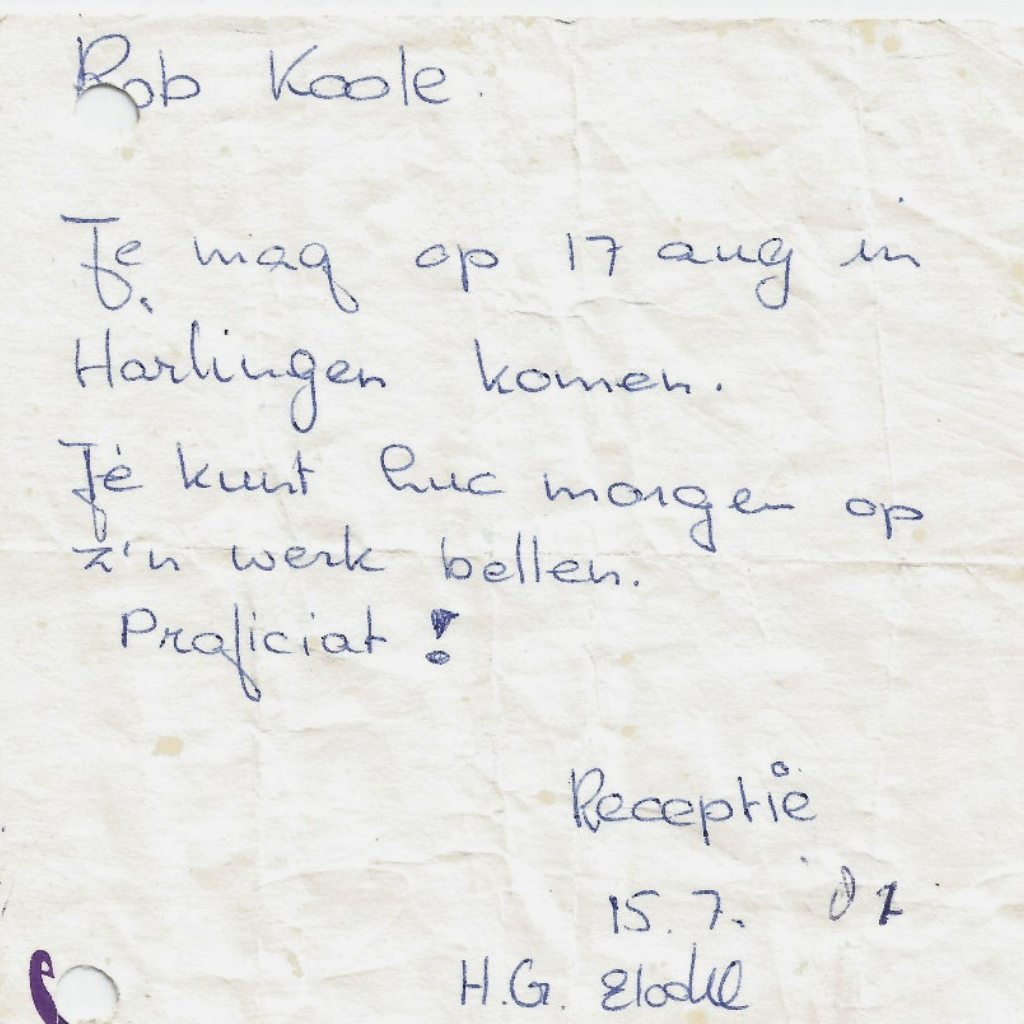 Rob Koole.
Je mag op 17 aug in
Harlingen komen.
Je kunt Luc morgen op
z'n werk bellen.
Proficiat!
Receptie
15.7.
H.G.